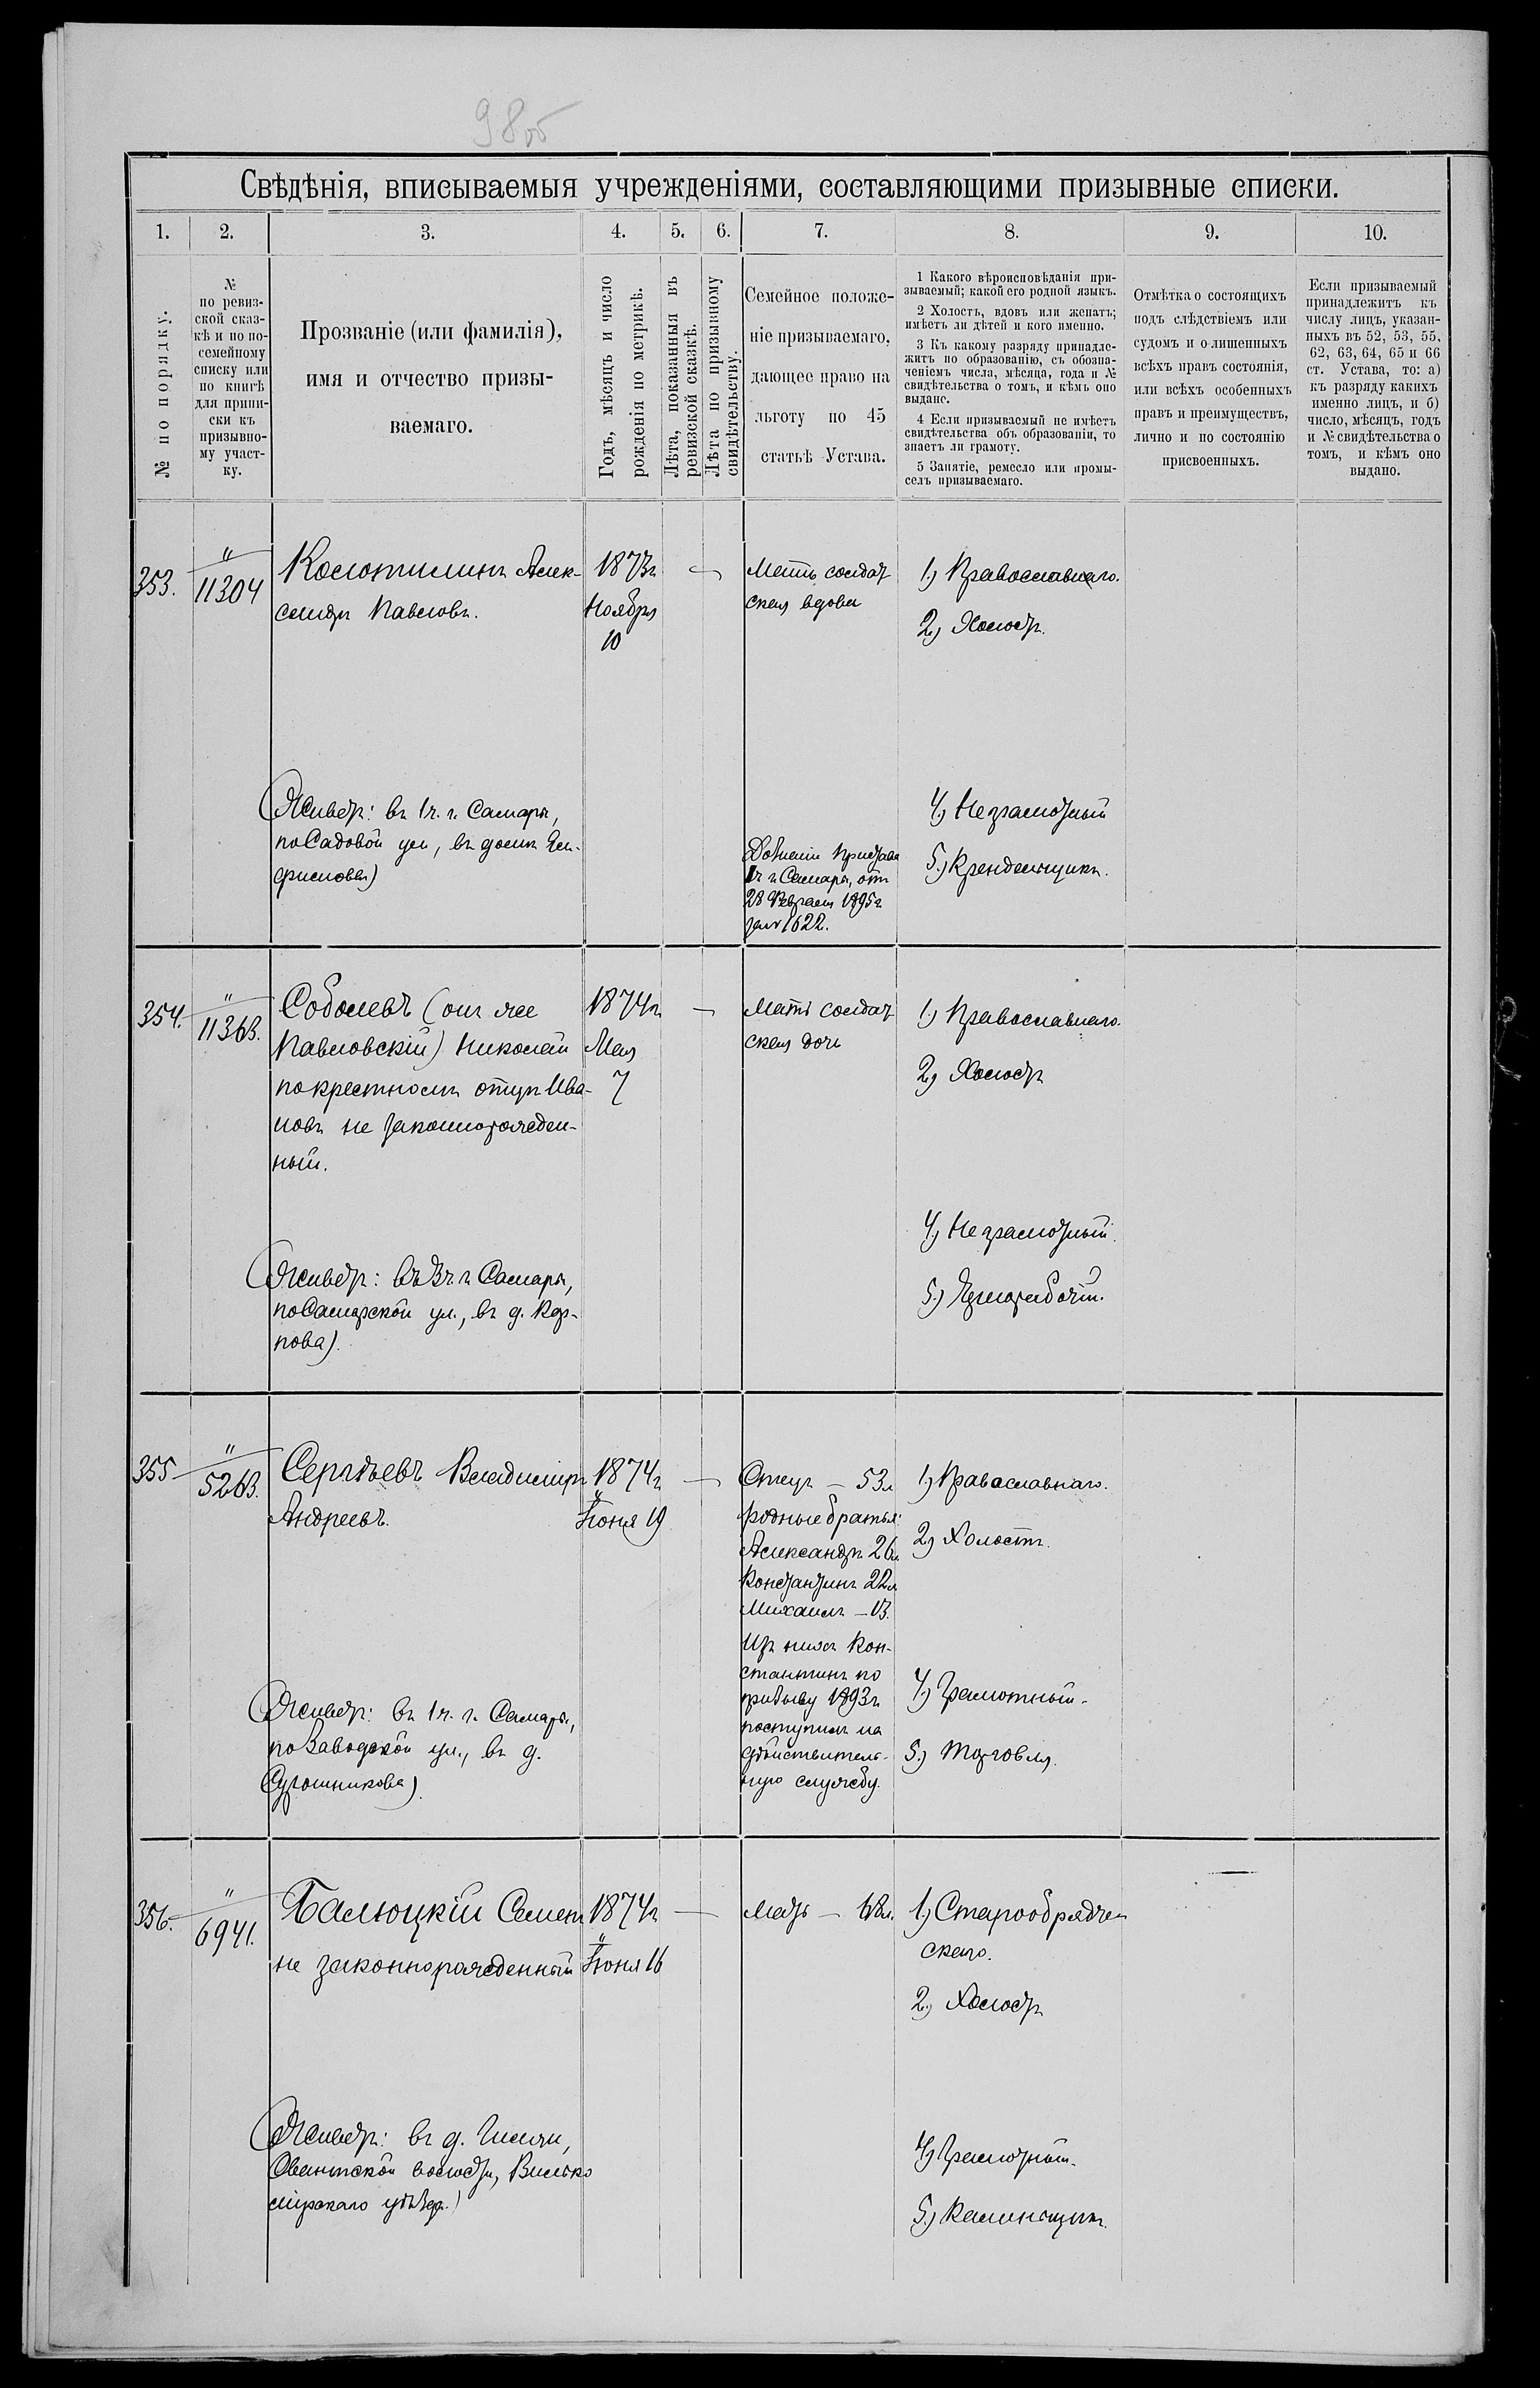 98об
Свѣдѣнія, вписываемыя учрежденіями, составляющими призывные списки.
1. 2. 3. 4. 5. 6. 7. 8. 9. 10.
№ по порядку.
№
по ревиз-
ской сказ-
кѣ и по по-
семейному
списку или
по книгѣ
для припи-
ски къ
призывно-
му участ-
ку.
Прозваніе (или фамилія),
имя и отчество призы-
ваемаго.
Годъ, мѣсяцъ и число
рожденія по метрикѣ.
Лѣта, показанныя въ
ревизской сказкѣ.
Лѣта по призывному
свидѣтельству.
Семейное положе-
ніе призываемаго,
дающее право на
льготу по 45
статьѣ Устава.
1 Какого вѣроисповѣданія при-
зываемый; какой его родной языкъ.
2 Холостъ, вдовъ или женатъ;
имѣетъ ли дѣтей и кого именно.
3 Къ какому разряду принадле-
житъ по образованію, съ обозна-
ченіемъ числа, мѣсяца, года и №
свидѣтельства о томъ, и кѣмъ оно
выдано.
4 Если призываемый не имѣетъ
свидѣтельства объ образованіи, то
знаетъ ли грамоту.
5 Занятіе, ремесло или промы-
селъ призываемаго.
Отмѣтка о состоящихъ
подъ слѣдствіемъ или
судомъ и о лишенныхъ
всѣхъ правъ состоянія,
или всѣхъ особенныхъ
правъ и преимуществъ,
лично и по состоянію
присвоенныхъ.
Если призываемый
принадлежитъ къ
числу лицъ, указан-
ныхъ въ 52, 53, 55,
62, 63, 64, 65 и 66
ст. Устава, то: а)
къ разряду какихъ
именно лицъ, и б)
число, мѣсяцъ, годъ
и № свидѣтельства о
томъ, и кѣмъ оно
выдано.
353.
"
11304
Колотилинъ Алек-
сандръ Павловъ.
1873г
Ноября
10
—
Мать солдат
ская вдова
1) Православнаго.
2) Холостъ.
(Живетъ: въ 1ч. г. Самары,
по Садовой ул, въ домѣ
Пристава
1ч г Самары, отъ
28 Февраля 1895г
за№ 1622.
4) Неграмотный
5.) Крендельщикъ.
354.
"
11363.
Соболевъ (онъ же
Павловскій) Николай
по крестному отцу Ива-
новъ не законнорожден-
ный.
1874г
Мая
7
—
Мать солдат
ская дочь
1) Православнаго.
2) Холостъ
(Живетъ: въ 3ч г Самары,
по Самарской ул., въ д. Кар-
пова).
4) Неграмотный.
5.) Чернорабочій.
355
"
5263.
Сергѣевъ Владиміръ
Андреевъ.
1874г
Іюня 19
—
Отецъ – 53л
родные братья:
Александръ 26л
Константинъ 22л
Михаилъ – 13.
Изъ нихъ Кон-
стантинъ по
призыву 1893г
поступилъ на
дѣйствитель-
ную службу.
1) Православнаго.
2) Холостъ.
(Живетъ: въ 1ч. г. Самары,
по Заводской ул., въ д.
Сурошникова).
4) Грамотный.
5.) Торговля.
356.
"
6941.
Балюцкій Семенъ
не законнорожденный
1874г
Іюня 16
—
мать –
1) Старообрядче-
скаго.
2) Холостъ
(Живетъ: въ д.
волости, Вилько
мірскаго уѣзда.)
4) Грамотный.
5.) Каменьщикъ.